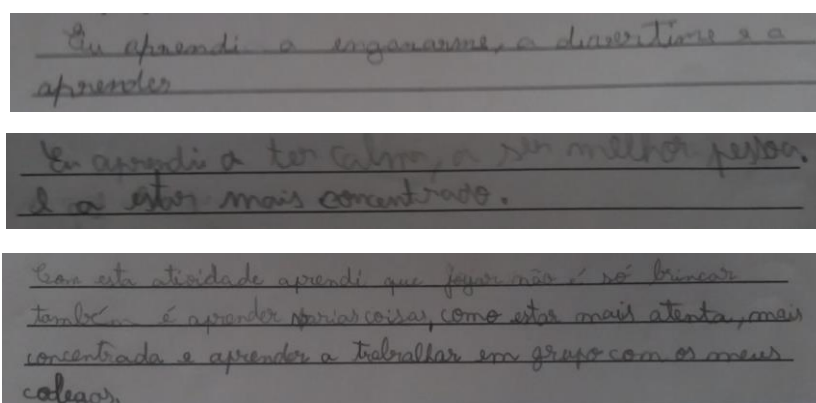 Eu aprendi a enganarme, a divertirme e a
aprender
Eu aprendi a ter calma, a ser melhor pessoa.
e a estar mais concentrado.
Com esta atividade aprendi que jogar não é só brincar
também é aprender varias coisas, como estar mais atenta, mais
concentrada e aprender a trabalhar em grupo com os meus
colegas.